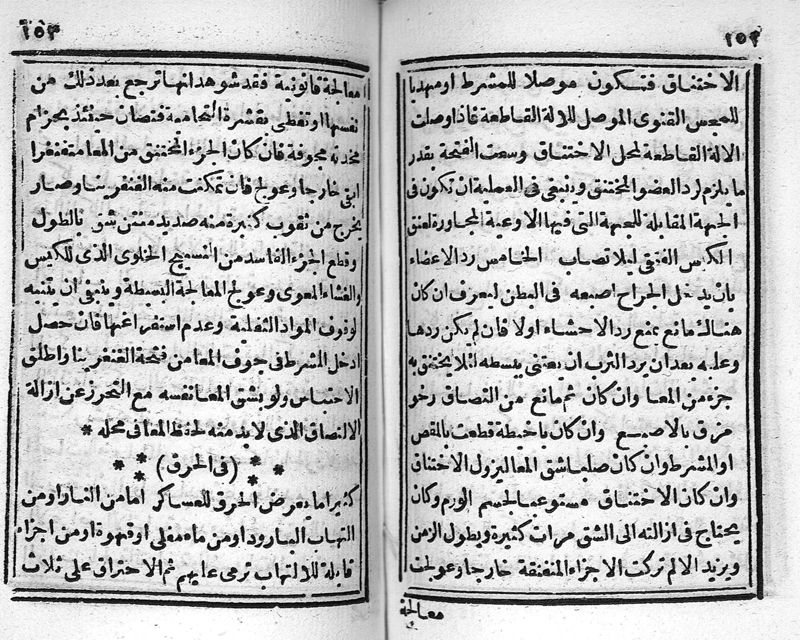 ١٥٢
الاختناق فتكون موصلا للمشرط او مهديا
للمجس القنوى الموصل للآلة القاطعة فاذا وصلت
الالة القاطعة لمحل الاختناق وسعت الفتحة بقدر
ما يلزم لرد العضو المختنق وينبغى فى العملية ان تكون فى
الجهة المقابلة للجهة التى فيها الاوعية المجاورة لعنق
الكيس الفتقى ليلا تصاب الخامس رد الاعضاء
بان يدخل الجراح اصبعه فى البطن ليعرف ان كان
هناك مانع يمنع رد الاحشاء اولا فان لم يكن ردها
وعليه بعد ان يرد الثرب ان يعتنى ببسطه لئلا يختنق به
جزء من المعا وان كان ثم مانع من التصاق رخو
مزق بالاصبع وان كان باخيطة قطعت بالمقص
او المشرط وان كان صلبا شق المعا ليزول الاختناق
وان كان الاختناق مستوعبا لجسم الورم وكان
يحتاج فى ازالته الى الشق مرات كثيرة ويطول الزمن
ويزيد الالم تركت الاجزاء المنفتقة خارجا وعولجت
معالجة
١٥٣
معالجة قانونية فقد شوهد انها ترجع بعد ذلك من
نفسها او تغطى بقشرة التحامية فتصان حينئذ بحزام
مخدته مجوفة فان كان الجزء المختنق من المعا متغنغرا
ابقى خارجا وعولج فان تمكنت منه الغنغرينا وصار
يخرج من ثقوب كثيرة منه صديد منتن شق بالطول
وقطع الجزء الفاسد من النسيج الخلوى الذى للكيس
والغشاء المعوى وعولج المعالجة البسيطة وينبغى ان يتنبه
لوقوف المواد الثفلية وعدم استفراغها فان حصل
ادخل المشرط فى جوف المعا من فتحة الغنغرينا واطلق
الاحتباس ولو بشق المعا نفسه مع التحرز عن ازالة
الالتصاق الذى لا بد منه لحفظ المعا فى محله *
* * * (فى الحرق) * * *
كثيرا ما يعرض الحرق للعساكر اما من النار او من
التهاب البارود او من ماء مغلى او قهوة او من اجزاء
قابلة للالتهاب ترمى عليهم ثم الاحتراق على ثلاث